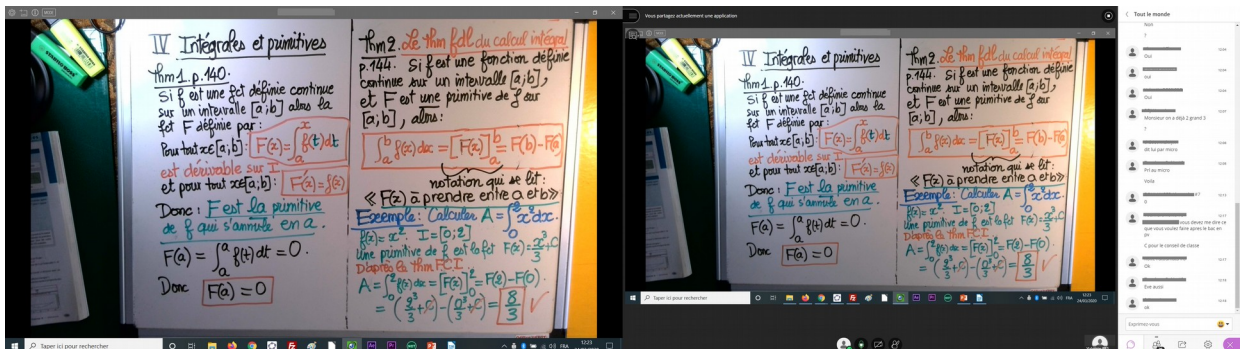 IV Intégrales et primitives
Thm 1. p.140.
Si f est une fct définie continue
sur un intervalle [a;b] alors la
fct F définie par :
Pour tout x∈[a;b] : F(x) = ∫ₐˣ f(t)dt
est dérivable sur I
et pour tout x∈[a;b] : F'(x) = f(x)
Donc : F est la primitive
de f qui s'annule en a.
F(a) = ∫ₐᵃ f(t)dt = 0.
Donc F(a) = 0
Thm 2. Le thm fdl du calcul intégral
p.144. Si f est une fonction définie
continue sur un intervalle [a;b],
et F est une primitive de f sur
[a;b], alors :
∫ₐᵇ f(x)dx = [F(x)]ₐᵇ = F(b) - F(a)
notation qui se lit :
« F(x) à prendre entre a et b »
Exemple : Calculer A = ∫₀² x²dx.
f(x) = x² I = [0;2]
Une primitive de f est la fct F(x) = x³/3 + C
D'après le thm FCI
A = ∫₀² f(x)dx = [F(x)]₀² = F(2) - F(0).
= (2³/3 + C) - (0³/3 + C) = 8/3 ✓
Taper ici pour rechercher
12:23
Vous partagez actuellement une application
IV Intégrales et primitives
Thm 1 p.140.
Si f est une fct définie continue
sur un intervalle [a;b] alors la
fct F définie par :
Pour tout x∈[a;b] : F(x) = ∫ₐˣ f(t)dt
est dérivable sur I
et pour tout x∈[a;b] : F'(x) = f(x)
Donc : F est la primitive
de f qui s'annule en a.
F(a) = ∫ₐᵃ f(t)dt = 0.
Donc F(a) = 0
Thm 2. Le thm fdl du calcul intégral
p.144. Si f est une fonction définie
continue sur un intervalle [a;b],
et F est une primitive de f sur
[a;b], alors :
∫ₐᵇ f(x)dx = [F(x)]ₐᵇ = F(b) - F(a)
notation qui se lit :
« F(x) à prendre entre a et b »
Exemple : Calculer A = ∫₀² x²dx.
f(x) = x² I = [0;2]
une primitive de f est la fct F(x) = x³/3 + C
D'après le thm FCI
A = ∫₀² f(x)dx = [F(x)]₀² = F(2) - F(0).
= (2³/3 + C) - (0³/3 + C) = 8/3 ✓
Taper ici pour rechercher
12:23
24/03/2020
Tout le monde
Non
?
Oui
oui
Oui
Monsieur on a déjà 2 grand 3
?
dit lui par micro
Prl au micro
Voila
vous devez me dire ce
que vous voulez faire apres le bac en
pv
C pour le conseil de classe
Ok
Eve aussi
ok
Exprimez-vous